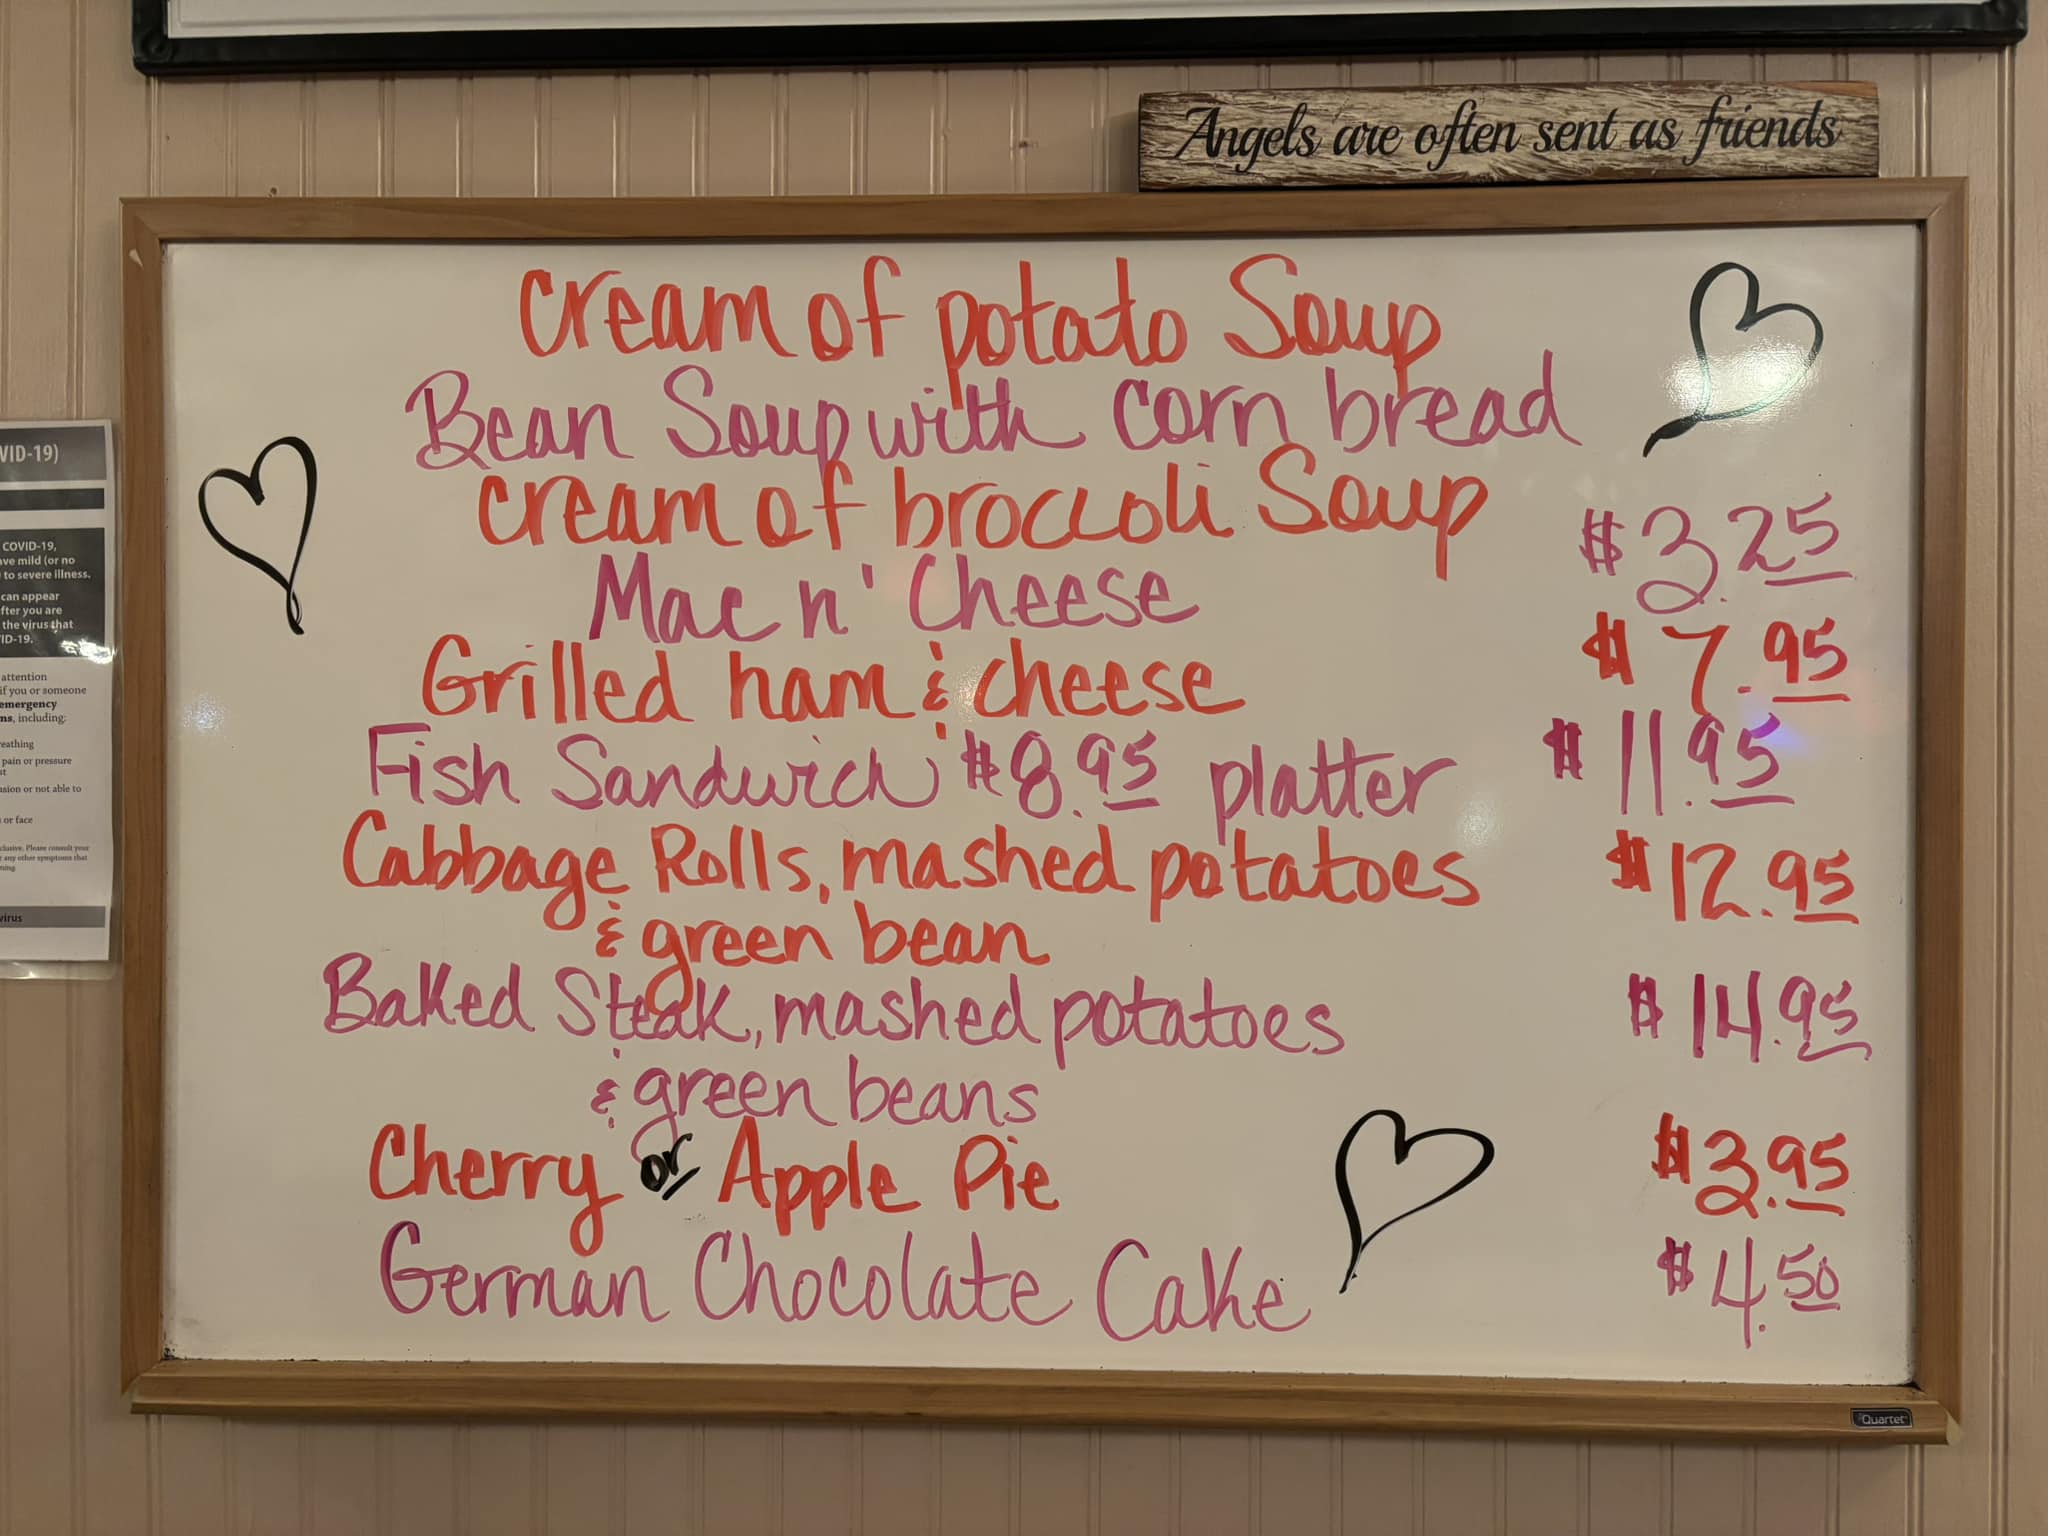 Angels are often sent as friends
Cream of potato Soup
Bean Soup with corn bread
Cream of broccoli Soup
Mac n' Cheese $3.25
Grilled ham & cheese $7.95
Fish Sandwich $8.95 platter $11.95
Cabbage Rolls, mashed potatoes $12.95
& green bean
Baked Steak, mashed potatoes $14.95
& green beans
Cherry or Apple Pie $3.95
German Chocolate Cake $4.50
Quartet
VID-19)
COVID-19,
ave mild (or no
to severe illness.
can appear
fter you are
the virus that
VID-19.
attention
if you or someone
emergency
ns, including:
reathing
pain or pressure
st
usion or not able to
or face
clusive. Please consult your
any other symptoms that
ning.
virus